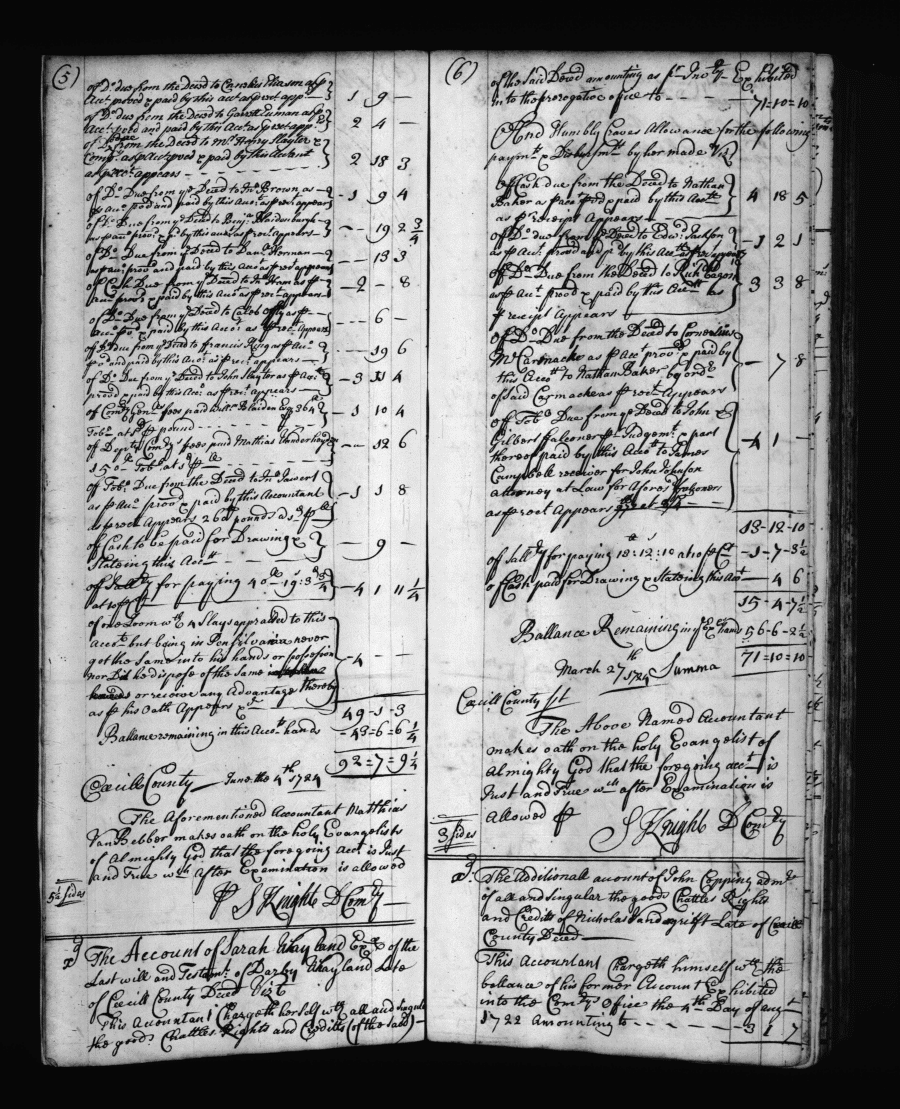 (5)
of Do due from the Deced to Cornelius Eliason as p
Acct proved & paid by this acct as p rect app — 1 9 —
of Do due from the Deced to Garrett as p
Acct proved and paid by this Acct as p rect app. 2 4 —
of Do Due from the Deced to Mr Henry Slayter &
Comp. as p Acct prov'd & paid by this Accotant
as p rect appears - - - - 2 18 3
of Do Due from ye Deced to Jno Brown as —
p Acct p'd and paid by this Acct as p rect appears — 1 9 4
of Do Due from ye Deced to Benj
as p acct prov'd & p'd by this acct as p rect appears — — 19 2 3/4
of Do Due from ye Deced to Danl Hernan —
as p acct prov'd and paid by this Acct as p rect appears — — 13 3
of Cash Due from ye Deced to as p
acct prov'd & paid by this Acct as p rect appears — 2 - 8
of Do Due from ye Deced to Caleb as p —
Acct pro'd & paid by this Accot as p rect Appears — — 6 —
of Do due from ye Deced to Francis King as p Acct
p'd and paid by this Acct as p rect appears — — 19 6
of Do Due from ye Deced to John Slayter as p Acct
proved & paid by this Acco as p rect appears — 3 11 4
of Comry Genls fees paid 364 lb
Tobo at 1d p pound — 1 10 4
of Depty Comrys fees paid Mathias Vanderhuyden
150 Tobo at 1d p lb — 12 6
of Tobo Due from the Deced to Jno
as p Acct prov'd & paid by this Accountant — 1 1 8
as p rect Appears 260 pounds
of Cash to be paid for Drawing &
Stateing this Acct — — 9 —
of Sallry for paying 40 : 19 : 3 3/4
at 10 p Ct — 4 1 11 1/4
of one Loom wth 4 Slays appraised to this
Accot but being in Pensilvania never
got the same into his hands or possession
nor Did he dispose of the same — 4 — —
or receive any Advantage thereby
as p his Oath Appears &c
49 - 1 - 3
Ballance remaining in this Accots hands — 43 = 6 = 6 1/4
92 = 7 = 9 1/4
Caecill County — June the 4th 1724
The Aforementioned Accountant Matthias
VanBebber makes oath on the holy Evangelists
of Almighty God that the foregoing Acct is Just
and True wch After Examination is allowed
5 1/2 sides
p S Knight D Comry
The Account of Sarah Wayland Exx of the
Last will and Testamt of Darby Wayland Late
of Caecill County Deced Vizt
This Accountant Chargeth herself wth all and Singular
the goods Chattles Rights and Credits (of the said) —
(6)
of the said Deced amounting as p Invry Exhibited
into the prerogative office to - - - - 71 = 10 = 10
And Humbly Craves Allowance for the following
paymts & Disbursmts by her made Vizt
Of Cash due from the Deced to Nathan
Baker as p acct prov'd & paid by this Accott — 4 18 5
as p receipt Appears —
of Do Due from ye Deced to Edwd Jackson
as p Acct proved and pd by this Acct as p rect appears — 1 2 1
of Do Due from the Deced to Rich
as p Acct prov'd & paid by this Acctt as — 3 3 8
p receipt Appears
of Do Due from the Deced to Cornelius
McCarmack as p Acct prov'd & paid by
this Accott to Nathan Baker by ordr — 7 8
of said Carmack as p rect Appears
of Tobo Due from ye Deced to John &
Gilbert Falconer p Judgemt & part
thereof paid by this Accott to James — 4 1 —
Campbell receiver for John Johnson
Attorney at Law for Aforesd Falconers
as p rect Appears
13 - 12 - 10
of Sallry for paying 13 : 12 : 10 at 10 p Ct — 1 - 7 - 3 1/2
of Cash paid for Drawing & Stateing this Acct — 4 6
15 - 4 - 7 1/2
Ballance Remaining in ye Exx hands 56 - 6 - 2 1/2
71 = 10 = 10
March 27th 1724 Summa
Caecill County Sst
The Above Named Accountant
makes oath on the holy Evangelist of
Almighty God that the foregoing acct is
Just and True wch after Examination is
allowed p
3 sides
S Knight D Comry
The Additionall account of John Copping admr
of all and singular the goods Chattles Rights
and Credits of Nicholas Vandegrift Late of Caecill
County Deced —
This Accountant Chargeth himself wth the
ballance of his former Account Exhibited
into the Comrys Office the 4th Day of augt
1722 amounting to - - - - 3 1 7